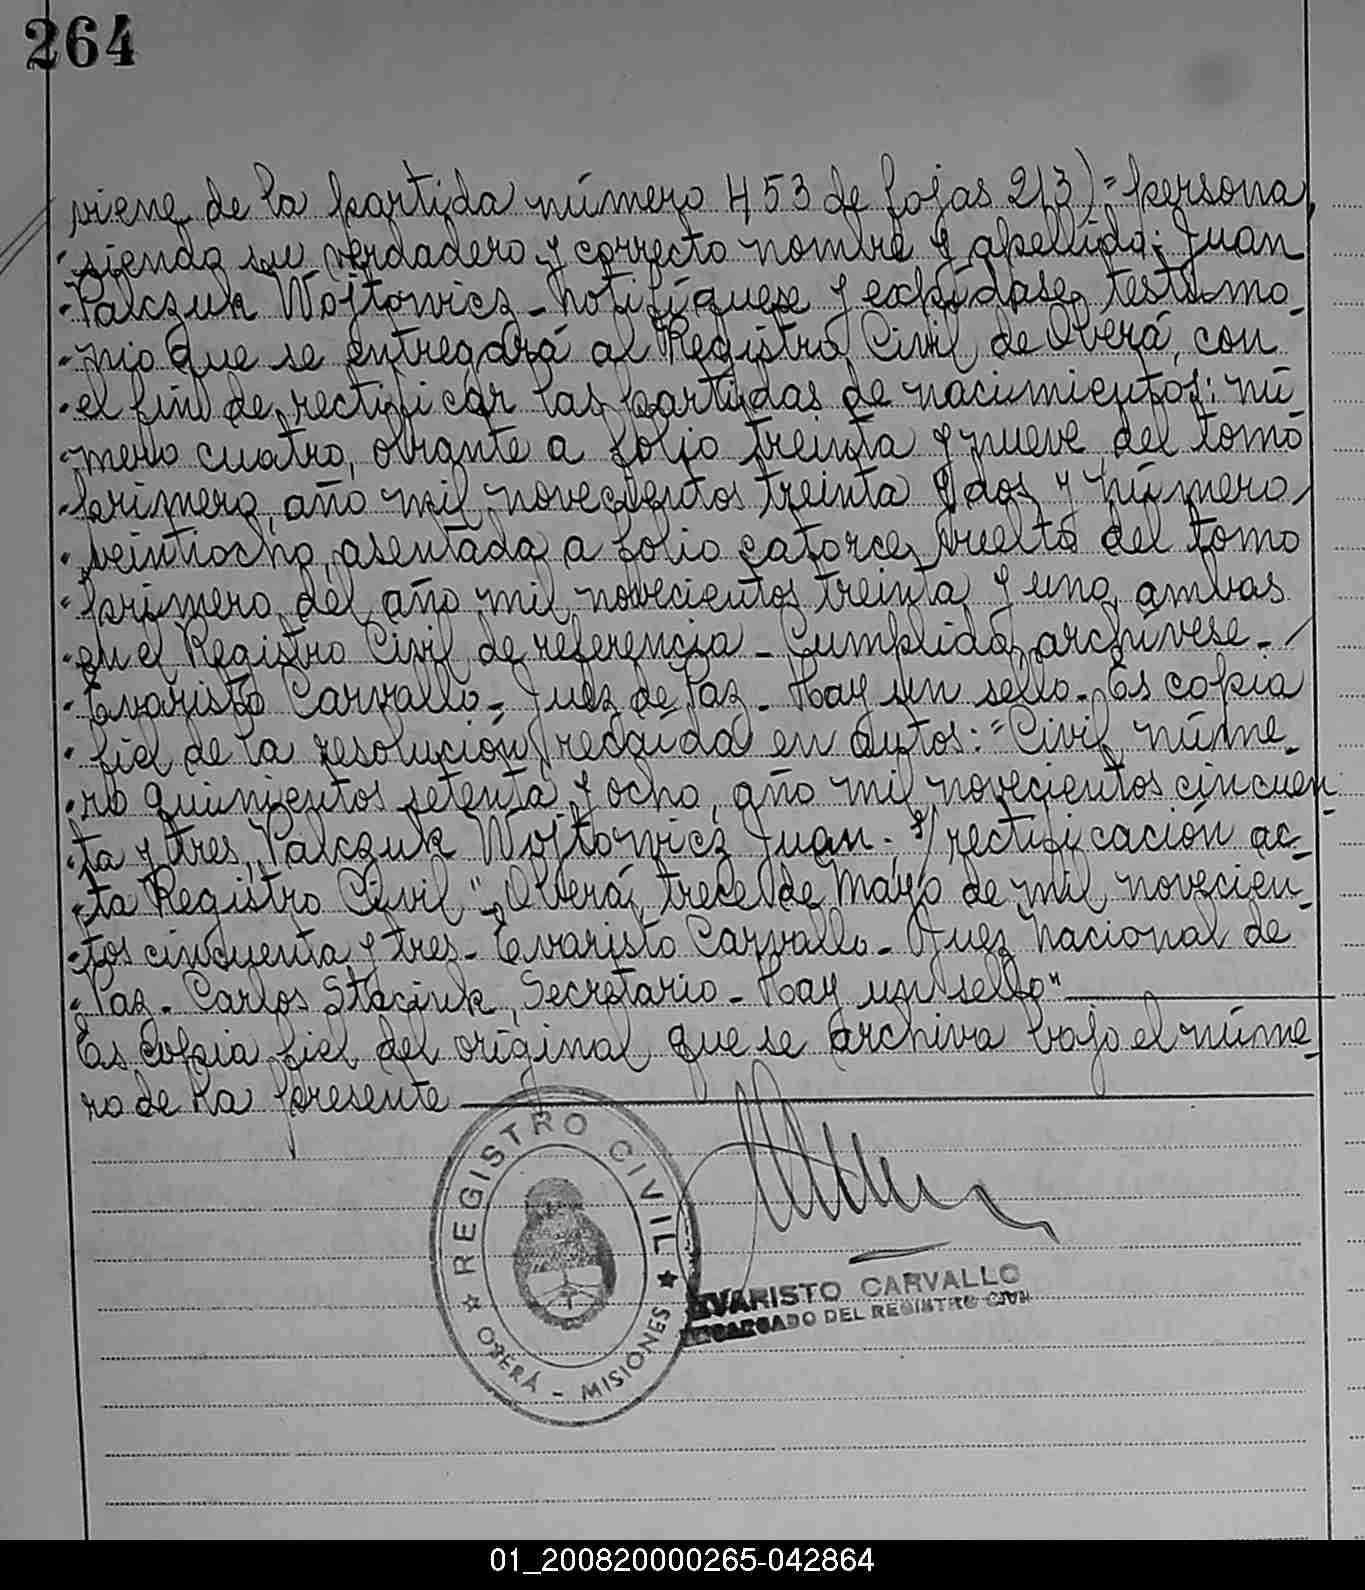 264
viene de la partida número 453 de fojas 213) = persona,
siendo su verdadero y correcto nombre y apellido: Juan
Palczuk Wojtowicz - Notifíquese y expídase testimo
nio que se entregará al Registro Civil de Oberá, con
el fin de rectificar las partidas de nacimientos: nú
mero cuatro, obrante a folio treinta y nueve del tomo
primero, año mil novecientos treinta y dos y número
veintiocho, asentada a folio catorce vuelta del tomo
primero del año mil novecientos treinta y uno, ambas
en el Registro Civil de referencia - Cumplido, archívese -
Evaristo Carvallo - Juez de Paz - Hay un sello - Es copia
fiel de la resolución recaída en autos: "Civil núme-
ro quinientos setenta y ocho, año mil novecientos cincuen-
ta y tres, Palczuk Wojtowicz Juan. s/ rectificación ac-
ta Registro Civil" - Oberá, trece de Mayo de mil novecien-
tos cincuenta y tres - Evaristo Carvallo - Juez Nacional de
Paz - Carlos Staciuk, Secretario - Hay un sello"
Es copia fiel del original que se archiva bajo el núme-
ro de la presente
REGISTRO CIVIL
OBERÁ - MISIONES
EVARISTO CARVALLO
ENCARGADO DEL REGISTRO CIVIL
01_200820000265-042864